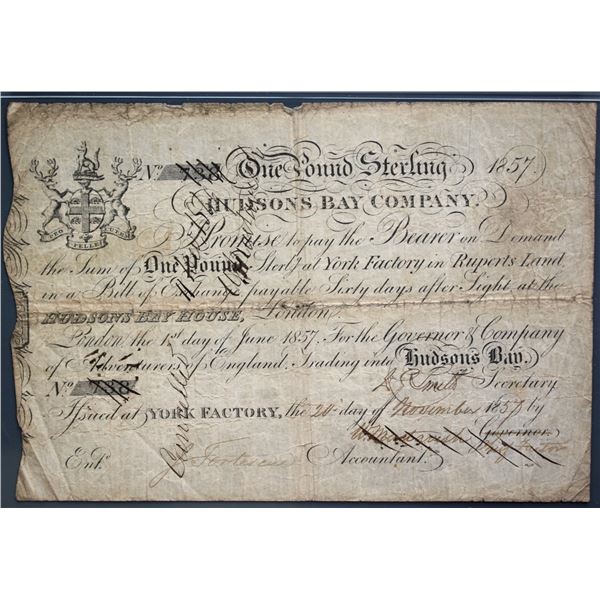 No 738 One Pound Sterling 1857
HUDSONS BAY COMPANY.
PRO PELLE CUTEM
I Promise to pay the Bearer on Demand
the Sum of One Pound Sterlg at York Factory in Ruperts Land
in a Bill of Exchange payable Sixty days after Sight at the
HUDSONS BAY HOUSE, London.
London the 1st day of June 1857. For the Governor & Company
of Adventurers of England. Trading into Hudson's Bay.
No 738 Smith Secretary
Issued at YORK FACTORY, the 20 day of November 1857 by
Governor
Entd Fortescue Accountant.
Cancelled